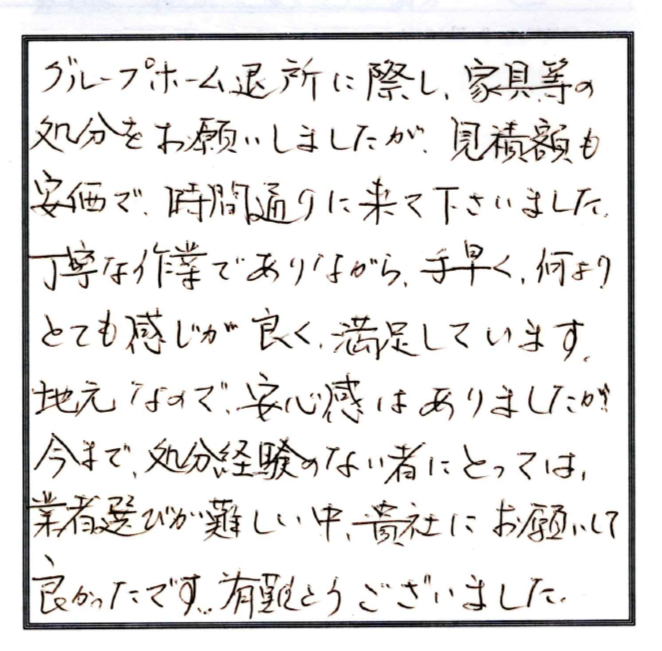 グループホーム退所に際し、家具等の
処分をお願いしましたが、見積額も
安価で、時間通りに来て下さいました。
丁寧な作業でありながら、手早く、何より
とても感じが良く、満足しています。
地元なので、安心感はありましたが
今まで、処分経験のない者にとっては、
業者選びが難しい中、貴社にお願いして
良かったです。有難とうございました。